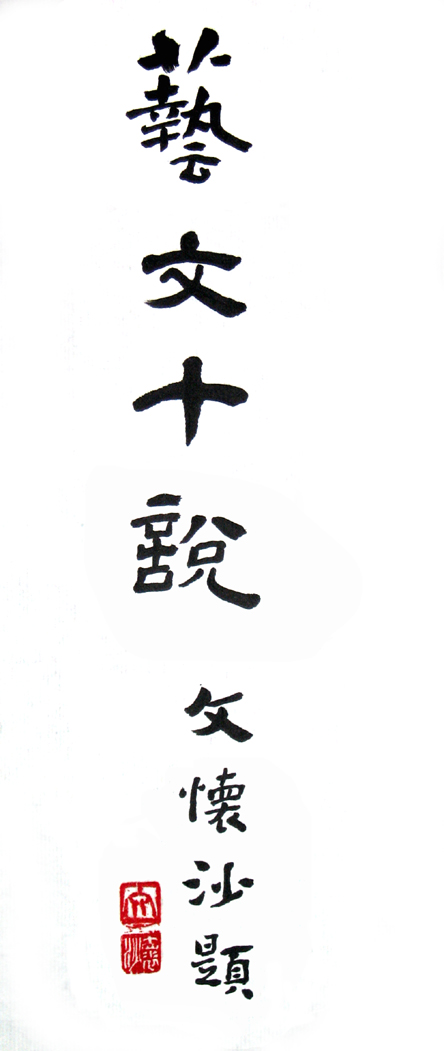 藝文十說
文懷沙題